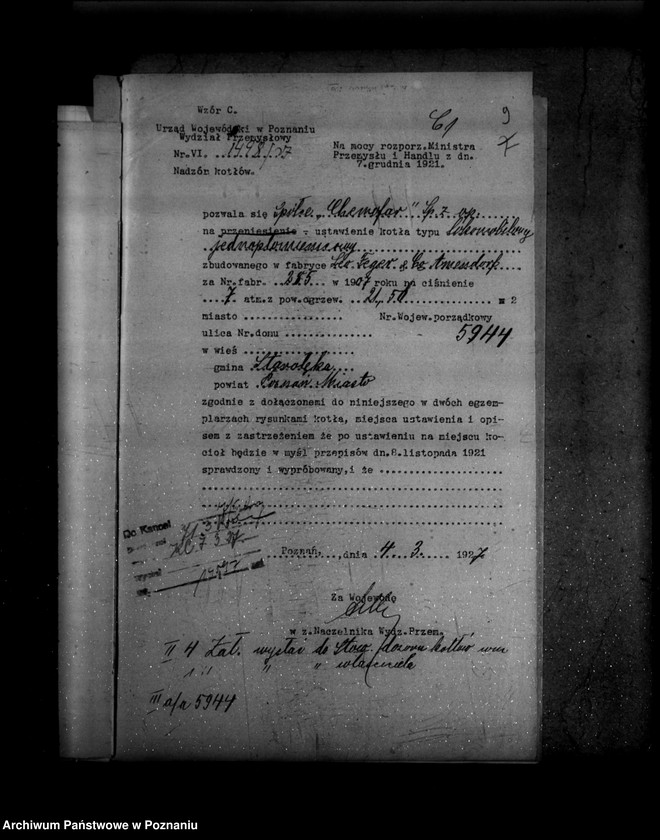 9
C1
Wzór C.
Urząd Wojewódzki w Poznaniu
Wydział Przemysłowy
Nr.VI.
Nadzór kotłów.
Na mocy rozporz.Ministra
Przemysłu i Handlu z dn.
7.grudnia 1921.
pozwala się Spółce „Chemofar" Sp. z op.
na przeniesienie - ustawienie kotła typu Lokomobilowy
jednopłomieniowy
zbudowanego w fabryce & Co. Amendorf
za Nr.fabr. 285 w 1907 roku na ciśnienie
7 atm.z pow.ogrzew. 21,50 m 2
miasto Nr.Wojew.porządkowy
ulica Nr.domu 5944
w wieś
gmina Starołęka
powiat Poznań. Miasto
zgodnie z dołączonemi do niniejszego w dwóch egzem-
plarzach rysunkami kotła, miejsca ustawienia i opi-
sem z zastrzeżeniem że po ustawieniu na miejscu ko-
cioł będzie w myśl przepisów dn.8.listopada 1921
sprawdzony i wypróbowany,i że
Do Kancel
Poznań, dnia 4. 3. 1927
Za Wojewodę
w z.Naczelnika Wydz.Przem.
II 4 Zał. wysłać do Stow. dozoru kotłów
" " właściciela
III a/a 5944
Archiwum Państwowe w Poznaniu